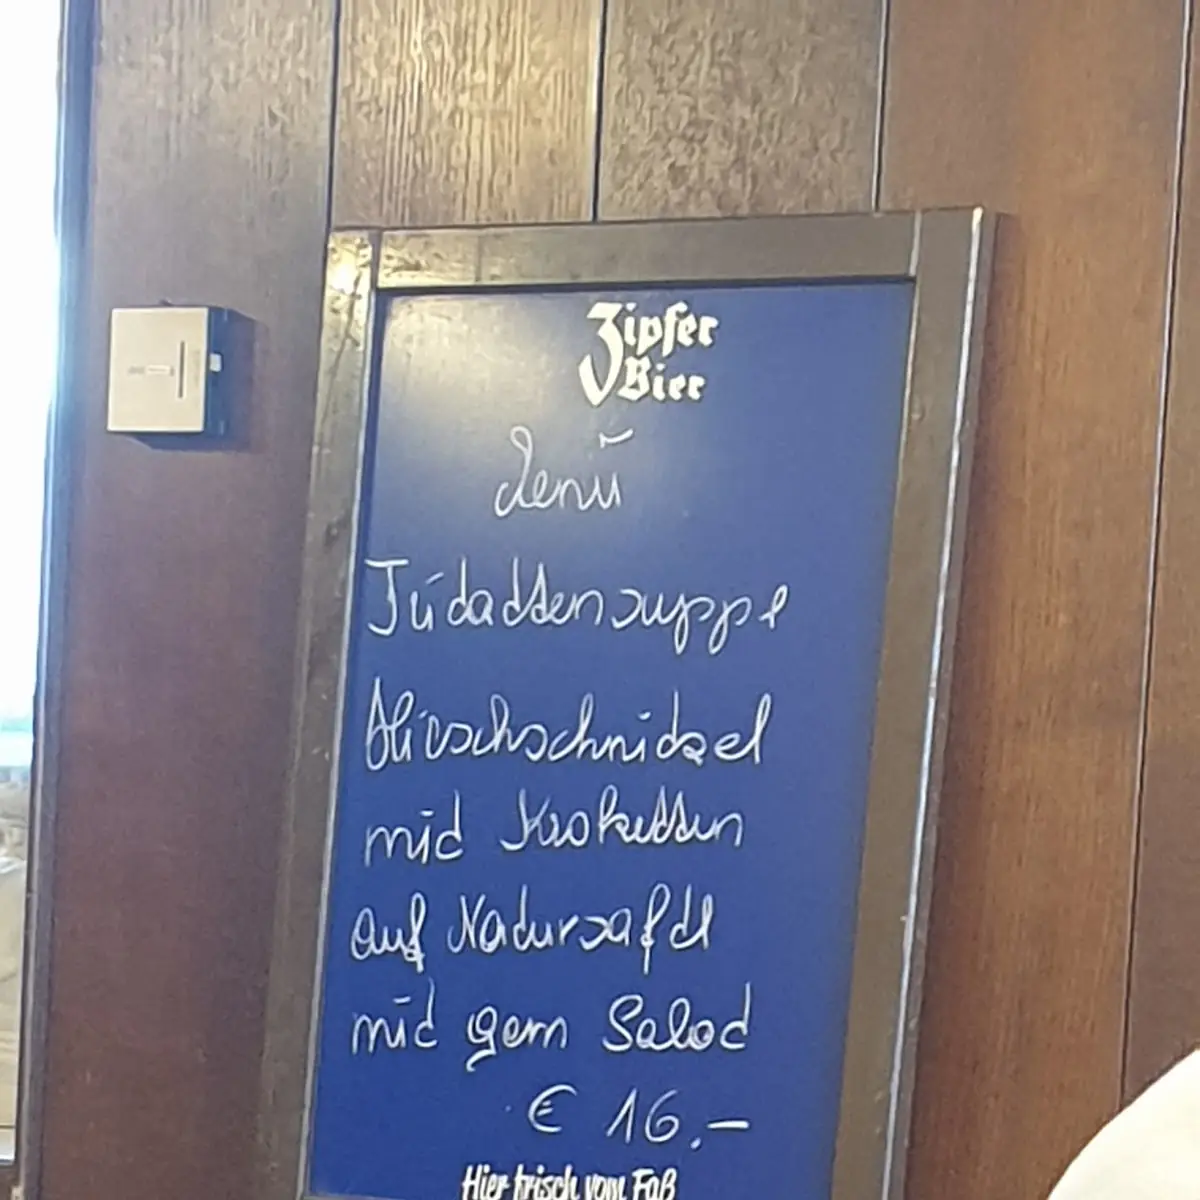 Zipfer
Bier
Menü
Frittattensuppe
Hirschschnitzel
mit Kroketten
auf Natursaftl
mit gem Salad
€ 16.-
Hier frisch vom Faß